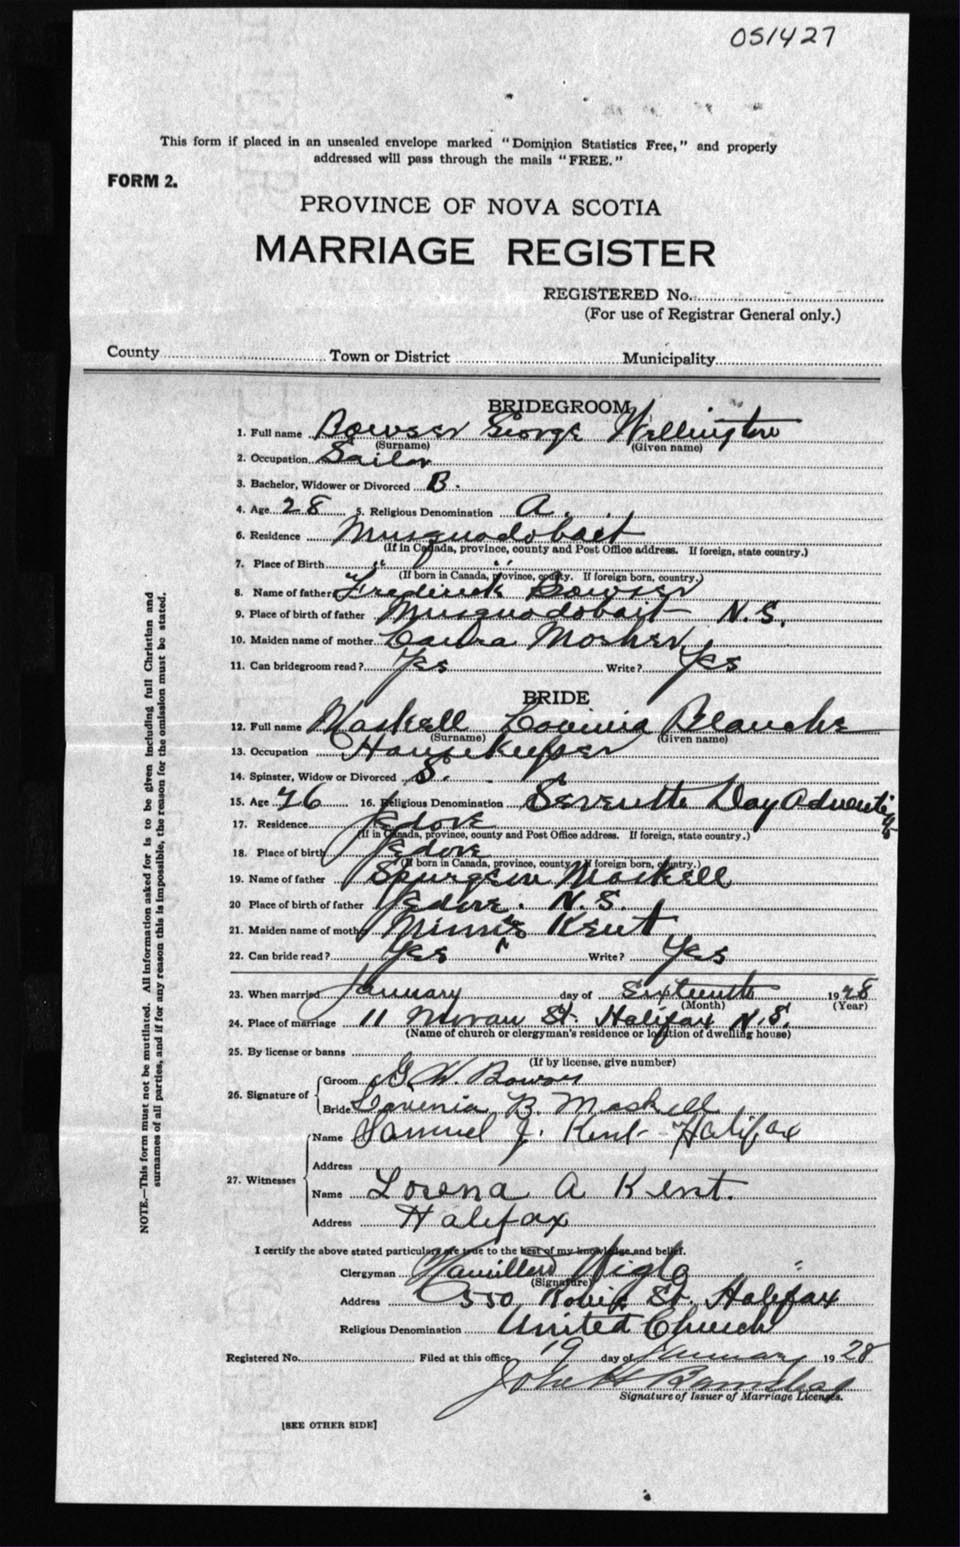 051427
This form if placed in an unsealed envelope marked "Dominion Statistics Free," and properly
addressed will pass through the mails "FREE."
FORM 2.
PROVINCE OF NOVA SCOTIA
MARRIAGE REGISTER
REGISTERED No.
(For use of Registrar General only.)
County Town or District Municipality
BRIDEGROOM
1. Full name Bowser George Wellington
(Surname) (Given name)
2. Occupation Sailor
3. Bachelor, Widower or Divorced B.
4. Age 28 5. Religious Denomination A.
6. Residence Musquodobait
(If in Canada, province, county and Post Office address. If foreign, state country.)
7. Place of Birth " "
(If born in Canada, province, county. If foreign born, country.)
8. Name of father Frederick Bowser
9. Place of birth of father Musquodobait N.S.
10. Maiden name of mother Laura Mosher
11. Can bridegroom read? Yes Write? Yes
BRIDE
12. Full name Maskell Lovinia Blanche
(Surname) (Given name)
13. Occupation Housekeeper
14. Spinster, Widow or Divorced S.
15. Age 26 16. Religious Denomination Seventh Day Adventist
17. Residence Jedore
(If in Canada, province, county and Post Office address. If foreign, state country.)
18. Place of birth Jedore
(If born in Canada, province, county. If foreign born, country.)
19. Name of father Spurgeon Maskell
20 Place of birth of father Jedore. N.S.
21. Maiden name of mother Minnie Kent
22. Can bride read? Yes Write? Yes
23. When married January day of Sixteenth 1928
(Month) (Year)
24. Place of marriage 11 Moran St. Halifax N.S.
(Name of church or clergyman's residence or location of dwelling house)
25. By license or banns
(If by license, give number)
26. Signature of Groom G. W. Bowser
Bride Lavenia B. Maskell
27. Witnesses Name Samuel J. Kent - Halifax
Address
Name Lorena A Kent.
Address Halifax
I certify the above stated particulars are true to the best of my knowledge and belief.
Clergyman Hamilton Wigle
(Signature)
Address 550 Robie St. Halifax
Religious Denomination United Church
Registered No. Filed at this office 19 day of January 1928
John H
Signature of Issuer of Marriage Licenses.
[SEE OTHER SIDE]
NOTE.—This form must not be mutilated. All information asked for is to be given including full Christian and
surnames of all parties, and if for any reason this is impossible, the reason for the omission must be stated.